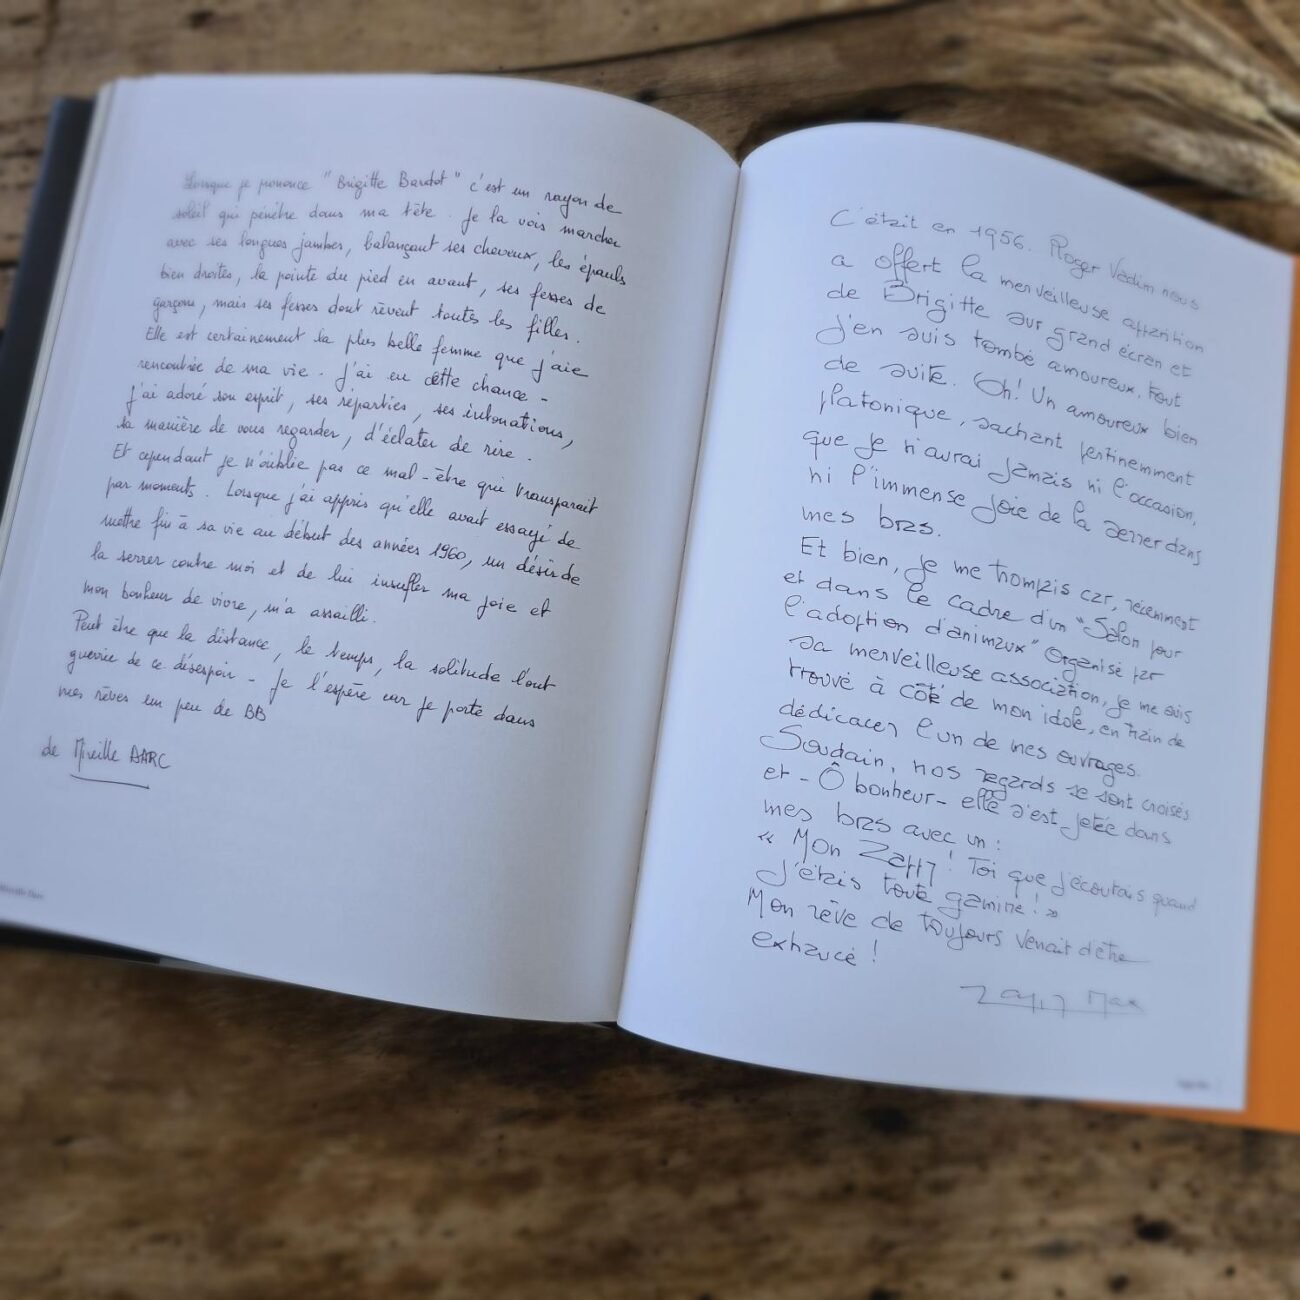 Lorsque je prononce "Brigitte Bardot" c'est un rayon de
soleil qui pénètre dans ma tête. Je la vois marcher
avec ses longues jambes, balançant ses cheveux, les épauls
bien droites, la pointe du pied en avant, ses fesses de
garçon, mais ses fesses dont rêvent toutes les filles.
Elle est certainement la plus belle femme que j'aie
rencontrée de ma vie. J'ai eu cette chance -
J'ai adoré son esprit, ses réparties, ses intonations,
sa manière de vous regarder, d'éclater de rire.
Et cependant je n'oublie pas ce mal-être qui transparait
par moments. Lorsque j'ai appris qu'elle avait essayé de
mettre fin à sa vie au début des années 1960, un désir de
la serrer contre moi et de lui insuffler ma joie et
mon bonheur de vivre, m'a assailli.
Peut être que la distance, le temps, la solitude l'ont
guérrie de ce désespoir - Je l'espère car je porte dans
mes rêves un peu de BB
de Mireille DARC
Mireille Darc
C'était en 1956. Roger Vadim nous
a offert la merveilleuse apparition
de Brigitte sur grand écran et
j'en suis tombé amoureux, tout
de suite. Oh! Un amoureux bien
platonique, sachant pertinemment
que je n'aurai jamais ni l'occasion,
ni l'immense joie de la serrer dans
mes bras.
Et bien, je me trompais car, récemment
et dans le cadre d'un "Salon pour
l'adoption d'animaux" organisé par
sa merveilleuse association, je me suis
trouvé à côté de mon idole, en train de
dédicacer l'un de mes ouvrages.
Soudain, nos regards se sont croisés
et - Ô bonheur - elle s'est jetée dans
mes bras avec un :
« Mon Zappy ! Toi que j'écoutais quand
j'étais toute gamine ! »
Mon rêve de toujours venait d'être
exhaucé !
Zappy Max